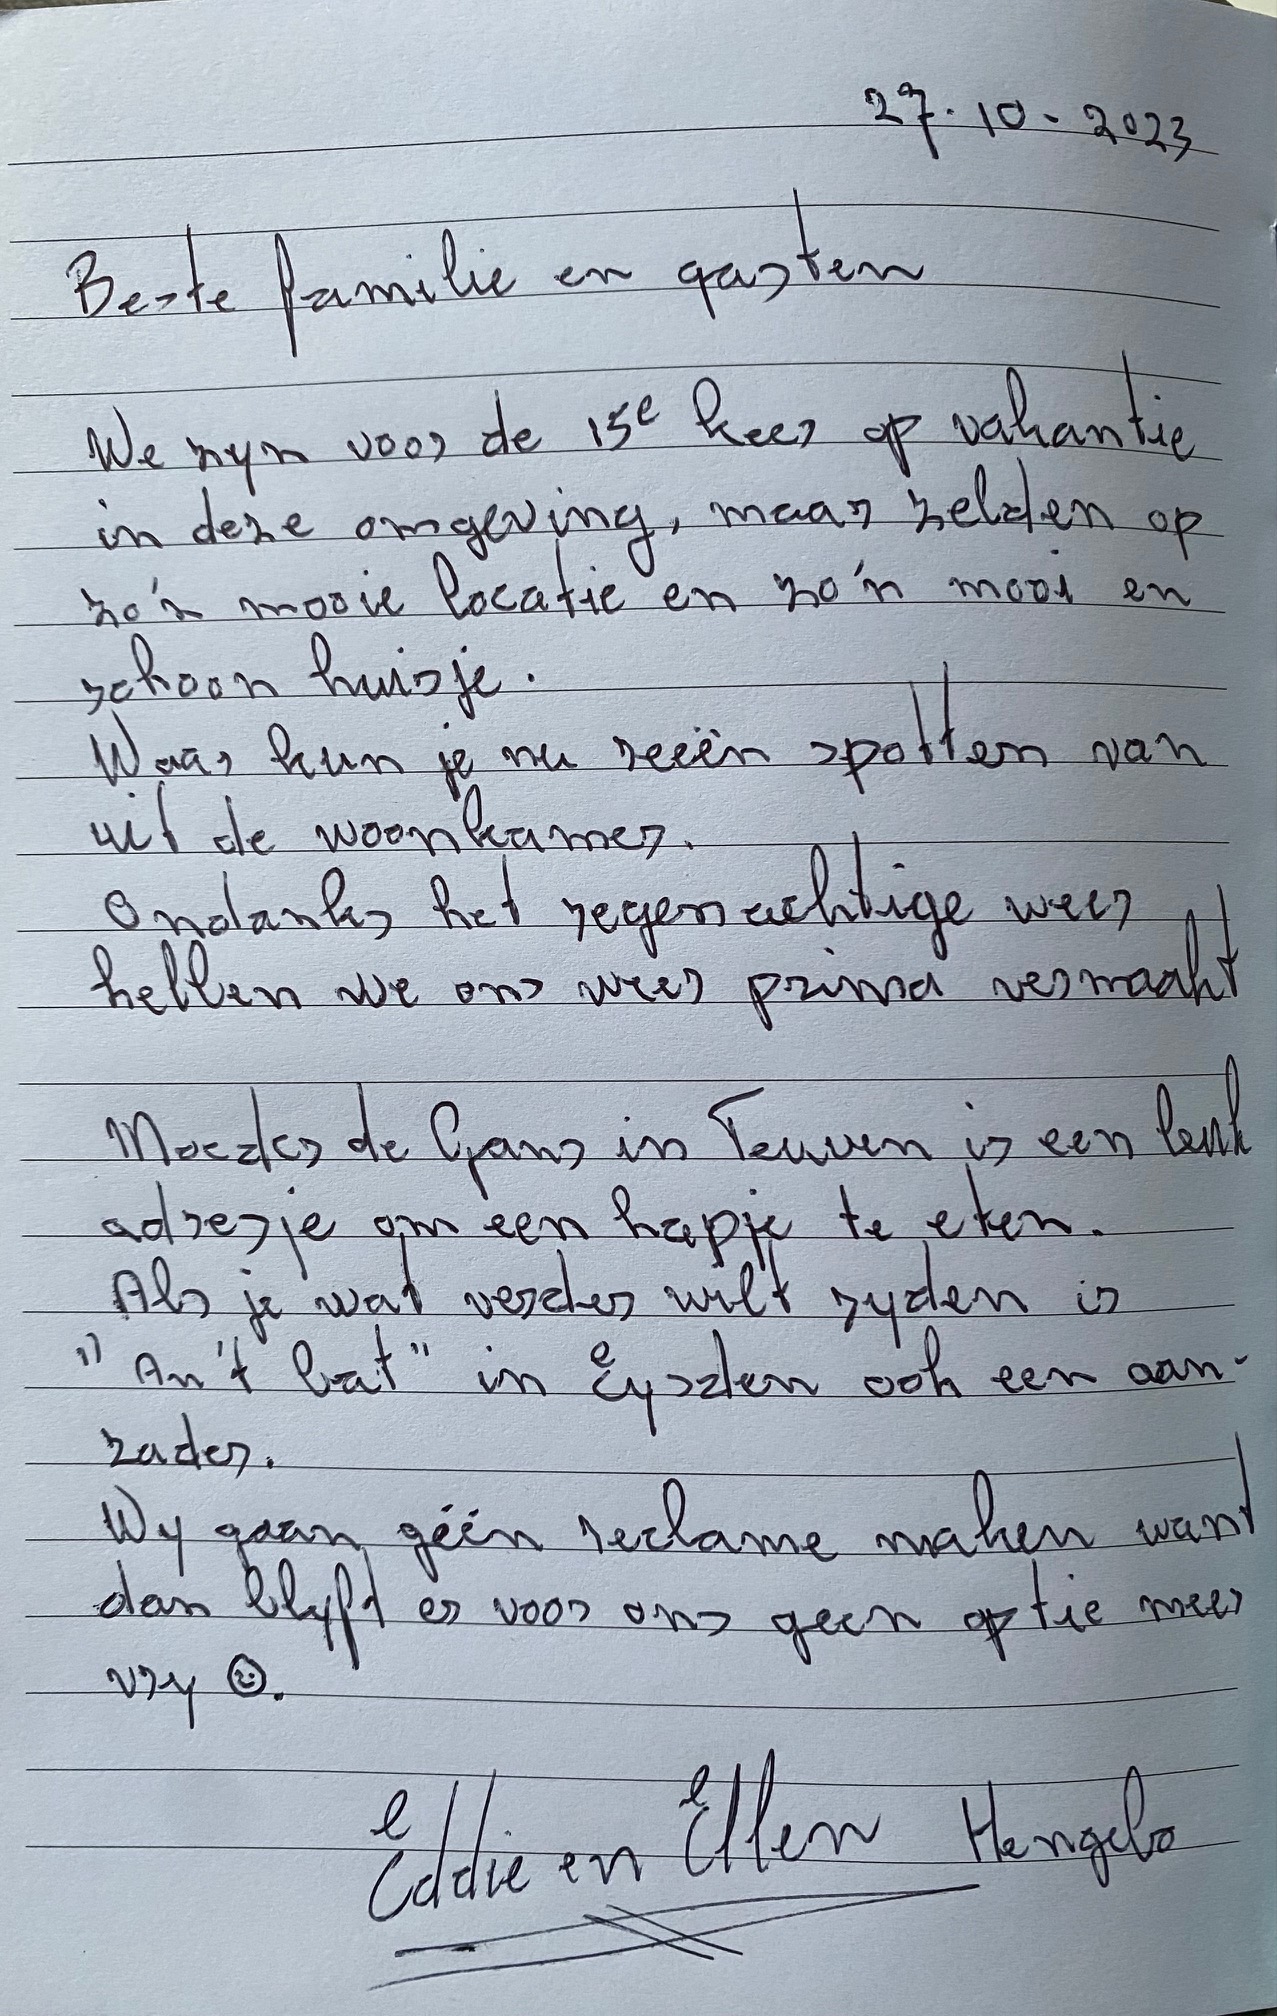 27-10-2023
Beste familie en gasten
We zyn voor de 15e keer op vakantie
in deze omgeving, maar zelden op
zo'n mooie locatie en zo'n mooi en
schoon huisje.
Waar kun je nu reeën spotten van
uit de woonkamer.
Ondanks het regenachtige weer
hebben we ons weer prima vermaakt
Moeder de Gans in Teuven is een leuk
adresje om een hapje te eten.
Als je wat verder wilt ryden is
"An't bat" in Eysden ook een aan-
rader.
Wy gaan géén reclame maken want
dan blyft er voor ons geen optie meer
vry ☺.
Eddie en Ellen Hengelo